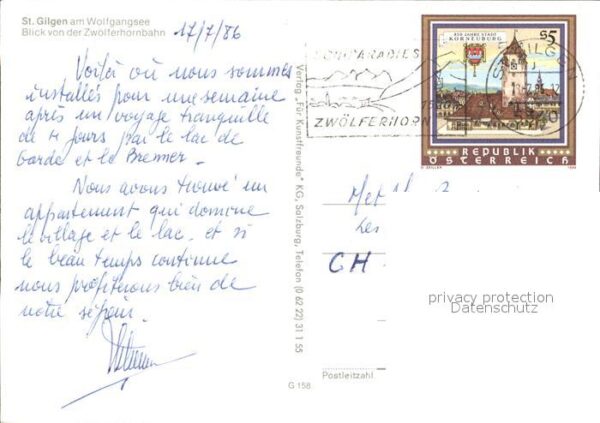 St. Gilgen am Wolfgangsee
Blick von der Zwölferhornbahn
17/7/86
Voilà où nous sommes
installés pour une semaine
après un voyage tranquille
de 4 jours par le lac de
Garde et le Brenner.
Nous avons trouvé un
appartement qui domine
le village et le lac, et si
le beau temps continue
nous profiterons bien de
notre séjour.
Verlag "Für Kunstfreunde" KG, Salzburg, Telefon (0 62 22) 31 1 55
G 158
ZWÖLFERHORN
ST. GILGEN
850 JAHRE STADT
KORNEUBURG
S5
REPUBLIK
ÖSTERREICH
1986
Met
Les
CH
privacy protection
Datenschutz
Postleitzahl